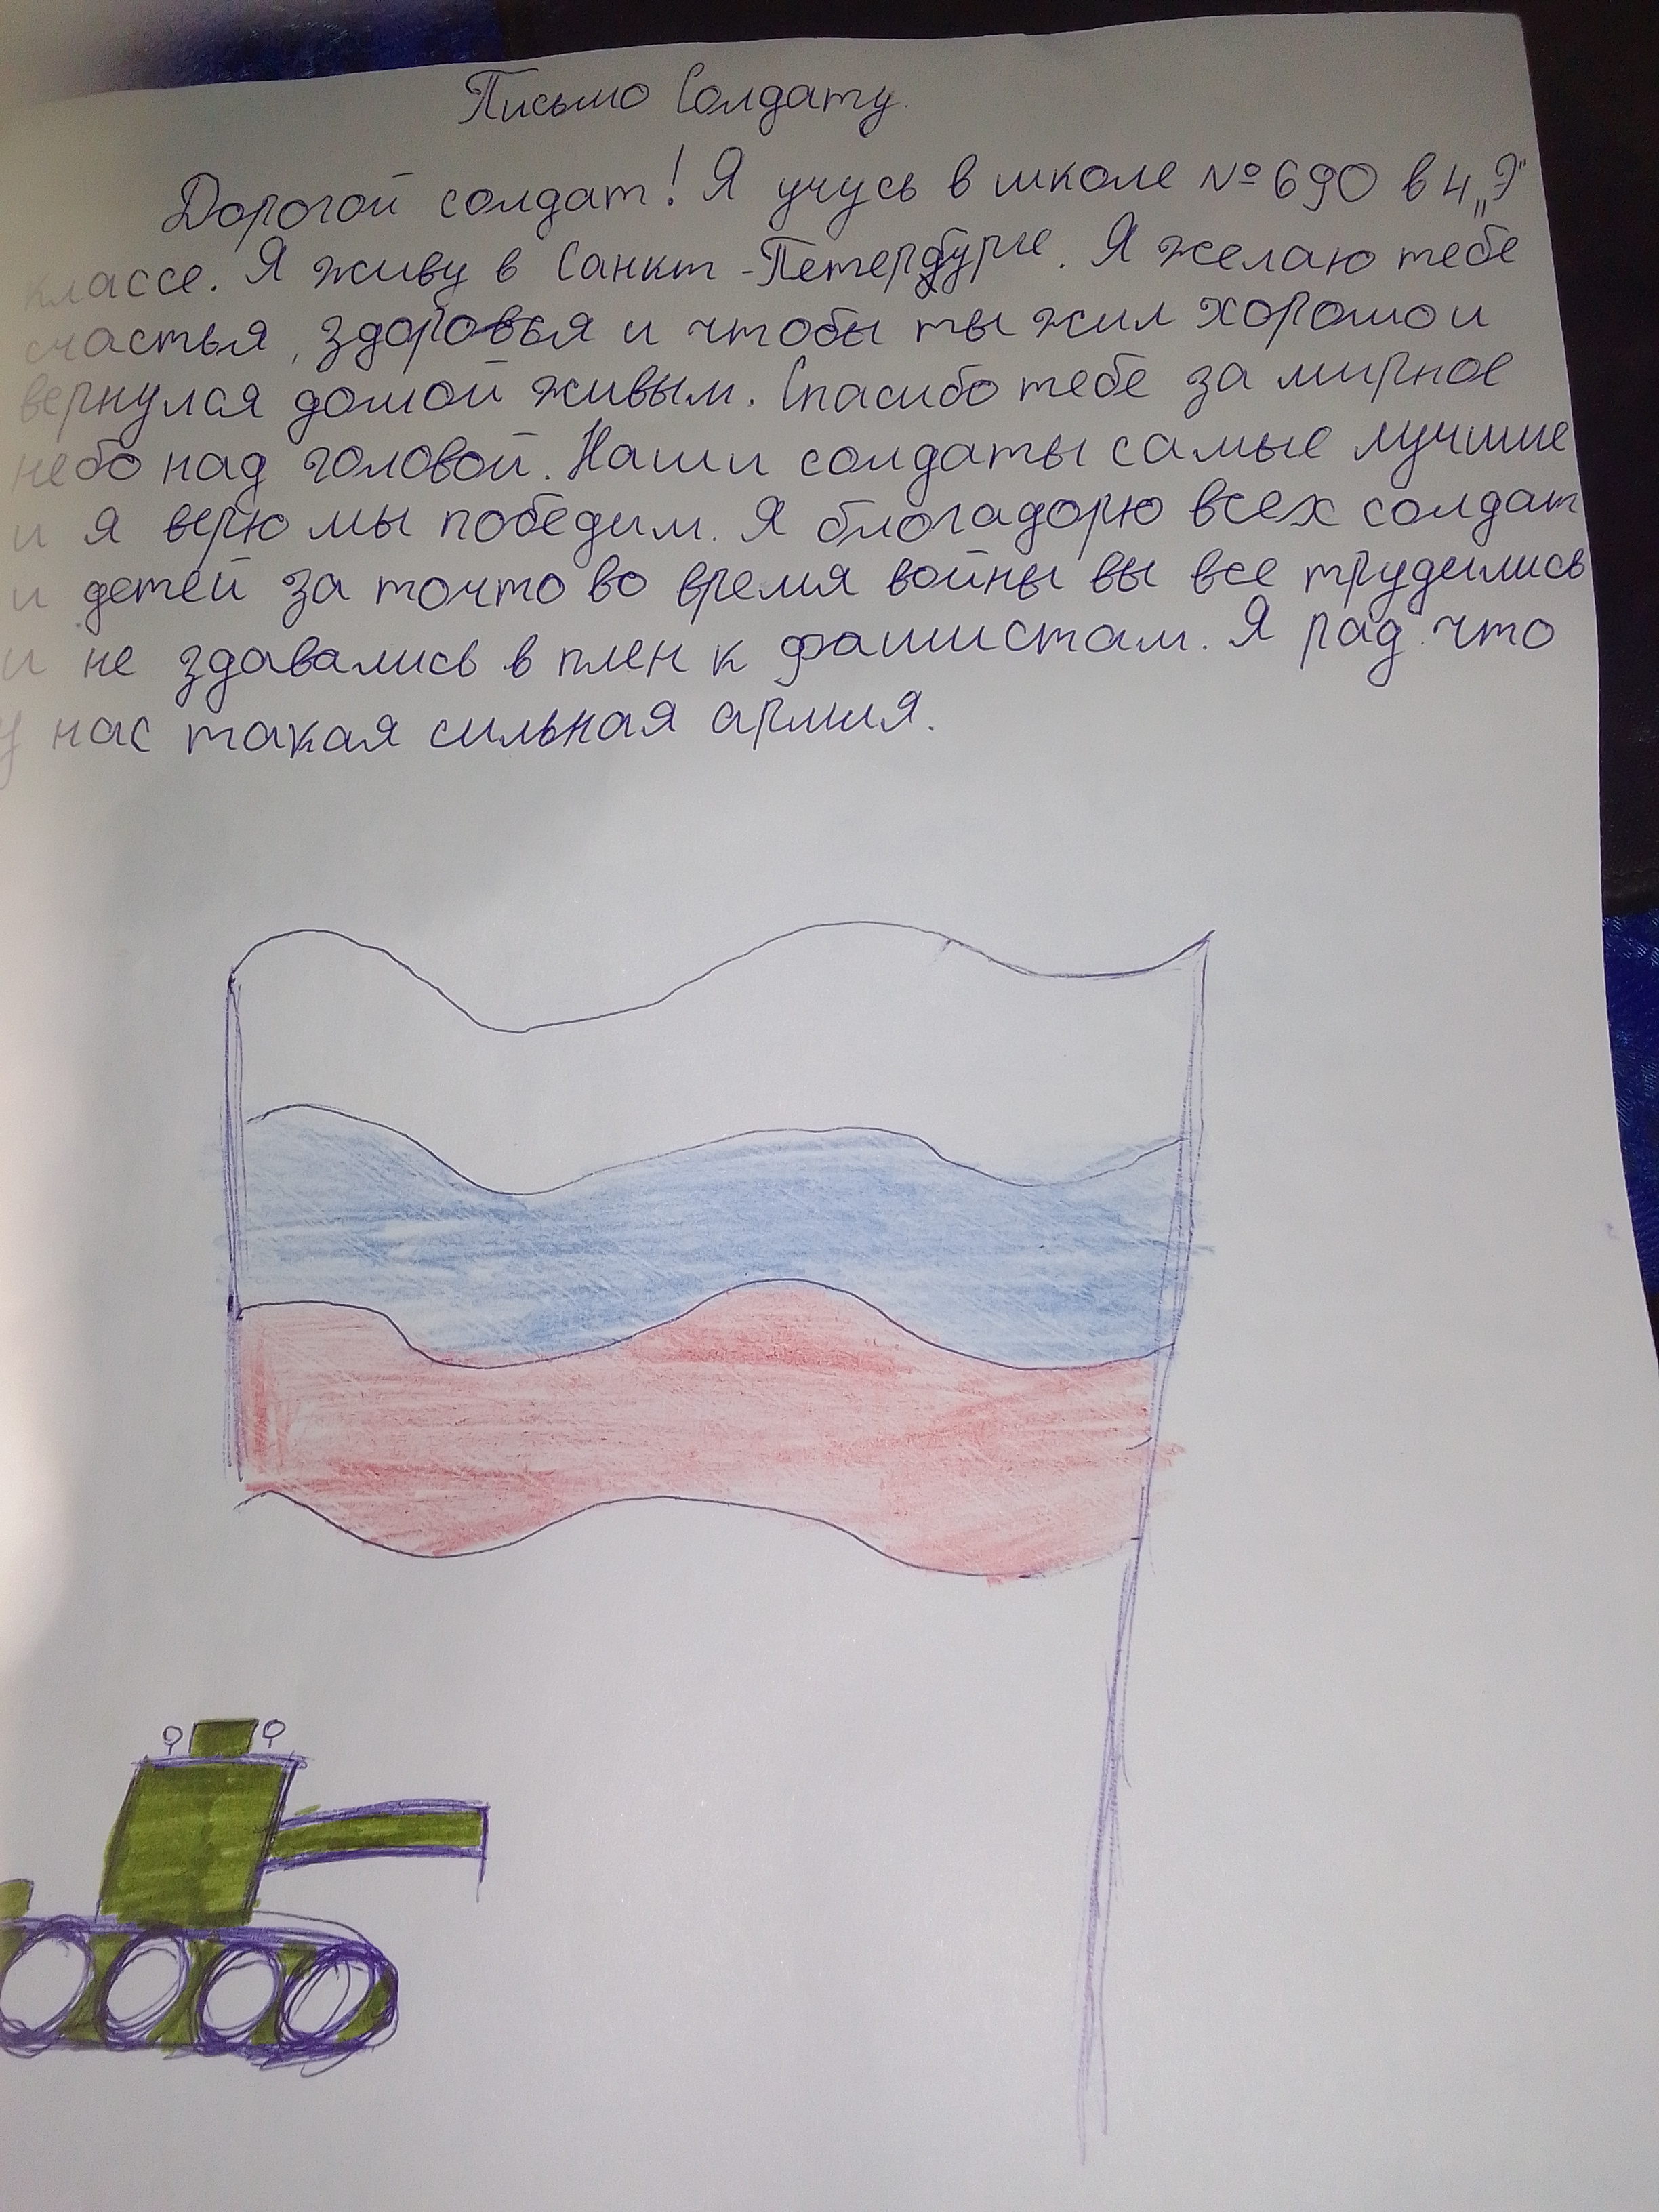 Письмо Солдату.
Дорогой солдат! Я учусь в школе №690 в 4 „Э"
классе. Я живу в Санкт-Петербурге. Я желаю тебе
счастья, здоровья и чтобы ты жил хорошо и
вернулся домой живым. Спасибо тебе за мирное
небо над головой. Наши солдаты самые лучшие
и я верю мы победим. Я блогадорю всех солдат
и детей за точто во время войны вы все трудились
и не здавались в плен к фашистам. Я рад что
у нас такая сильная армия.